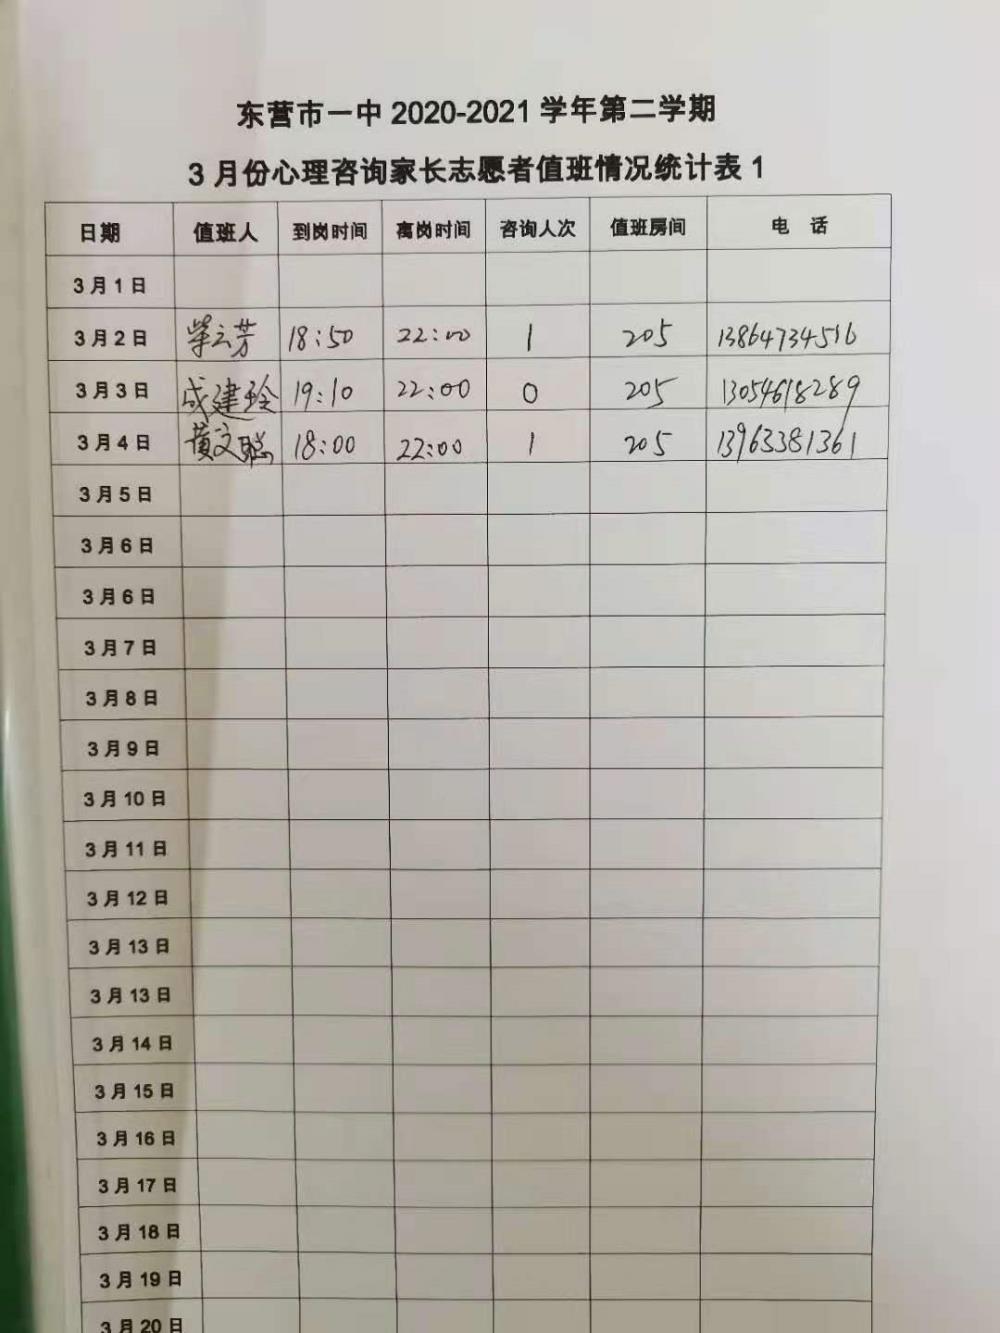 东营市一中 2020-2021 学年第二学期
3 月份心理咨询家长志愿者值班情况统计表 1
日期 值班人 到岗时间 离岗时间 咨询人次 值班房间 电 话
3 月 1 日
3 月 2 日 云芳 18:50 22:00 1 205 13864734516
3 月 3 日 成建玲 19:10 22:00 0 205 13054618289
3 月 4 日 黄文聪 18:00 22:00 1 205 13963381361
3 月 5 日
3 月 6 日
3 月 6 日
3 月 7 日
3 月 8 日
3 月 9 日
3 月 10 日
3 月 11 日
3 月 12 日
3 月 13 日
3 月 13 日
3 月 14 日
3 月 15 日
3 月 16 日
3 月 17 日
3 月 18 日
3 月 19 日
3 月 20 日